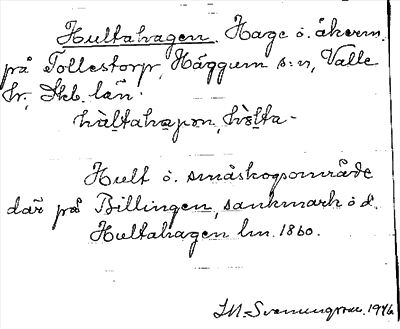 Hultahagen. Hage o. åkerm.
på Tollestorp, Häggum s:n, Valle
hr, Skb. län.
hùltahagon, hùlta-
Hult o. småskogsområde
där på Billingen, sankmark o d.
Hultahagen lm. 1860.
1946